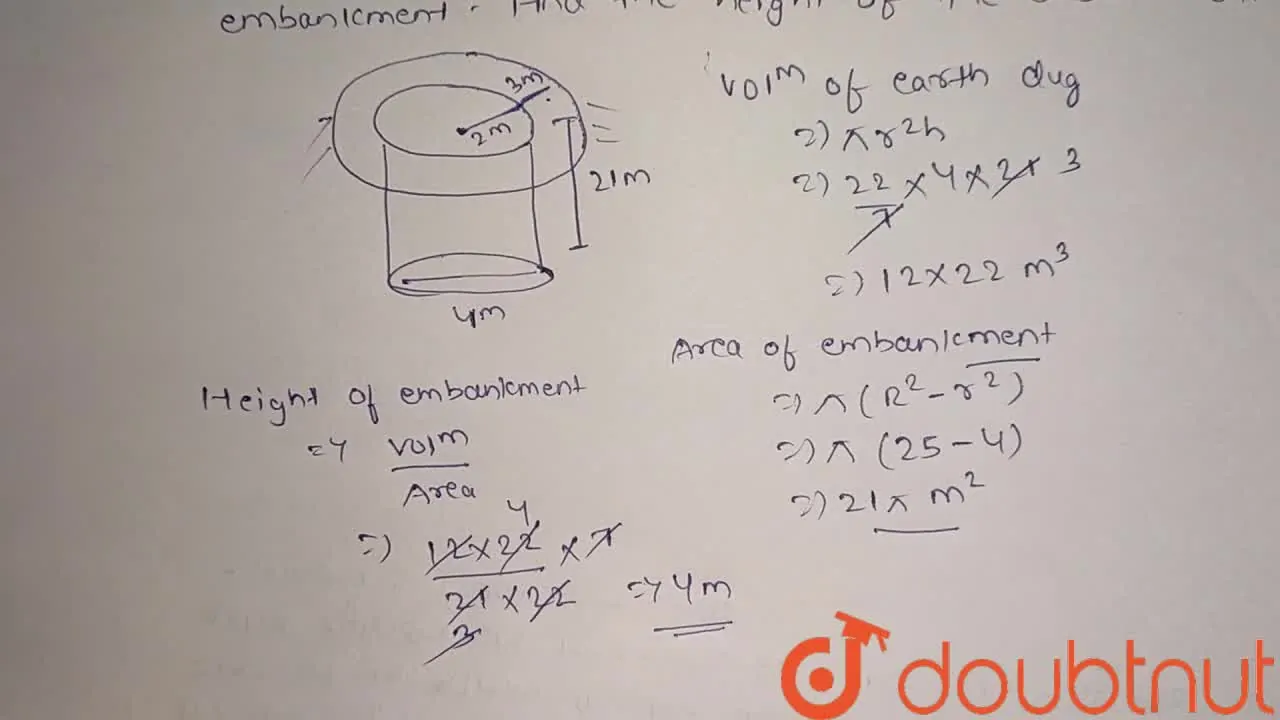 embankment. Find the height of the
3m
2m
21m
4m
Vol^m of earth dug
=) πr²h
=) 22/7 × 4 × 21 3
=) 12×22 m³
Area of embankment
=) π(R²-r²)
=) π (25-4)
=) 21π m²
Height of embankment
=> Vol^m
Area
4
=) 12×22 × 7
21×22
3
=> 4m
doubtnut